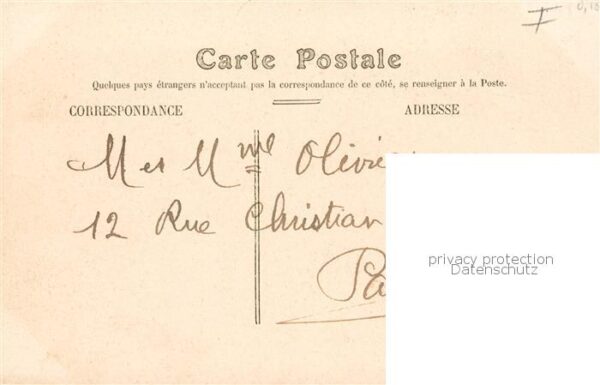 Carte Postale
Quelques pays étrangers n'acceptant pas la correspondance de ce côté, se renseigner à la Poste.
CORRESPONDANCE ADRESSE
M et Mme
12 Rue Christian
privacy protection
Datenschutz